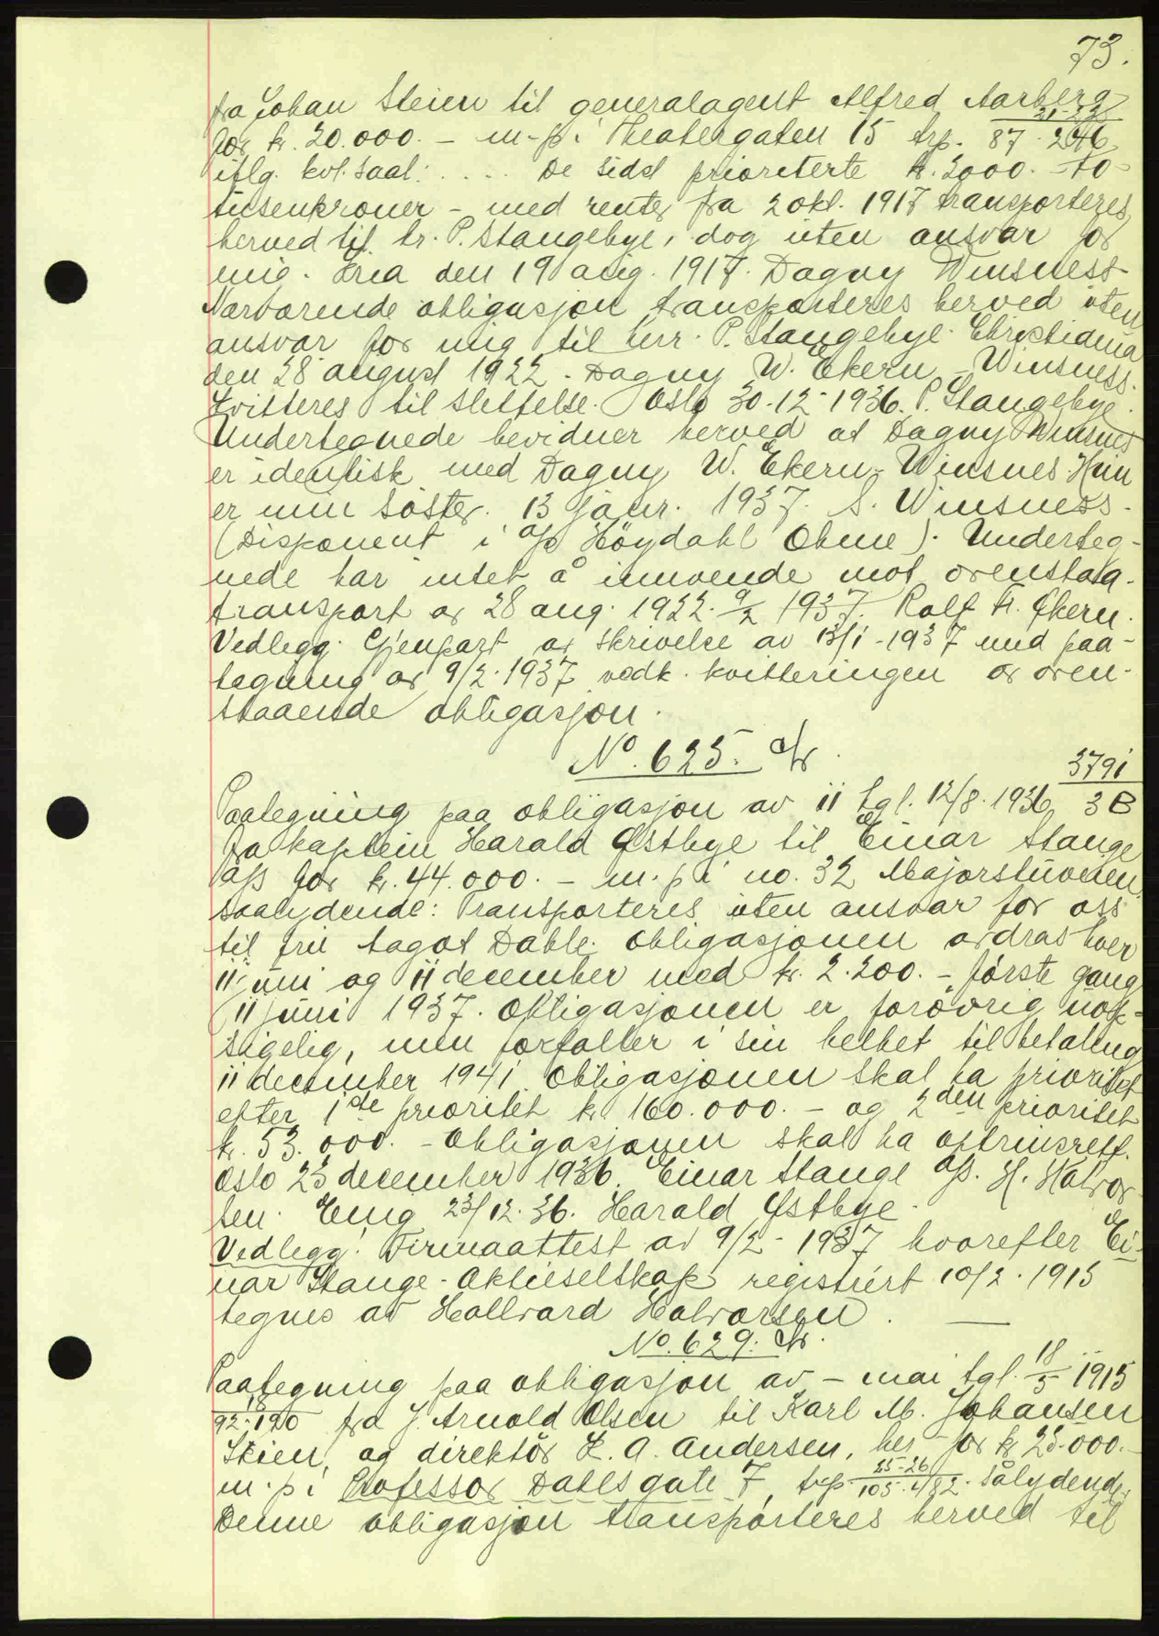 73.
fra Johan Steien til generalagent Alfred Aarberg
for kr. 20.000.- m-p. i Theatergaten 15 trp. 21-23 / 87-246
iflg. kvl. saal: .... De sidst prioriterte kr. 2000.- to-
tusenkroner - med renter fra 2 okt. 1917 transporteres
herved til hr. P. Stangebye, dog uten ansvar for
mig. Kria den 19 aug. 1917. Dagny Winsness
Nærværende obligasjon transporteres herved uten
ansvar for mig til herr P. Stangebye. Christiania
den 28 august 1922. Dagny W. Ekern - Winsness.
Kvitteres til slettelse. Oslo 30-12-1936. P. Stangebye.
Undertegnede bevidner herved at Dagny Winsnes
er identisk med Dagny W. Ekern-Winsnes. Hun
er min søster. 13 janr. 1937. S. Winsness.
(Disponent i A/S Höydahl Ohme). Underteg-
nede har intet å innvende mot ovenstaa.
transport av 28 aug. 1922. 9/2 1937. Rolf H. Ekern.
Vedlegg: Gjenpart av skrivelse av 13/1-1937 med paa-
tegning av 9/2-1937 vedk. kvitteringen av oven-
staaende obligasjon.
No. 625.
3791
Paategning paa obligasjon av 11 tgl. 12/8-1936 3B
fra kaptein Harald Østbye til Einar Stange
A/S for kr. 44.000.- m. p. i no. 32 Majorstuveien
saalydende: Transporteres uten ansvar for oss
til fru Dahle. Obligasjonen avdras hver
11 juni og 11 december med kr. 2.200.- første gang
11 juni 1937. Obligasjonen er forøvrig uop-
sigelig, men forfaller i sin helhet til betaling
11 december 1941. Obligasjonen skal ha prioritet
efter 1ste prioritet kr 160.000.- og 2den prioritet
kr. 53.000.- Obligasjonen skal ha optrinsrett.
Oslo 23 december 1936. Einar Stange A/S. H. Halvor-
sen. Enig 23/12.36. Harald Østbye.
Vedlegg: Firmaattest av 9/2-1937 hvorefter Ei-
nar Stange - Aktieselskap registrert 10/2. 1915
tegnes av Hallvard Halvorsen.
No. 629.
Paategning paa obligasjon av - mai tgl. 18/5 1915
18 / 92-190 fra J. Arnold Olsen til Karl M. Johansen
Skien, og direktør L. A. Andersen, her for kr 25.000.-
m. p. i Professor Dahls gate 7, trp 25-26 / 105-482. Sålydende:
Denne obligasjon transporteres herved til